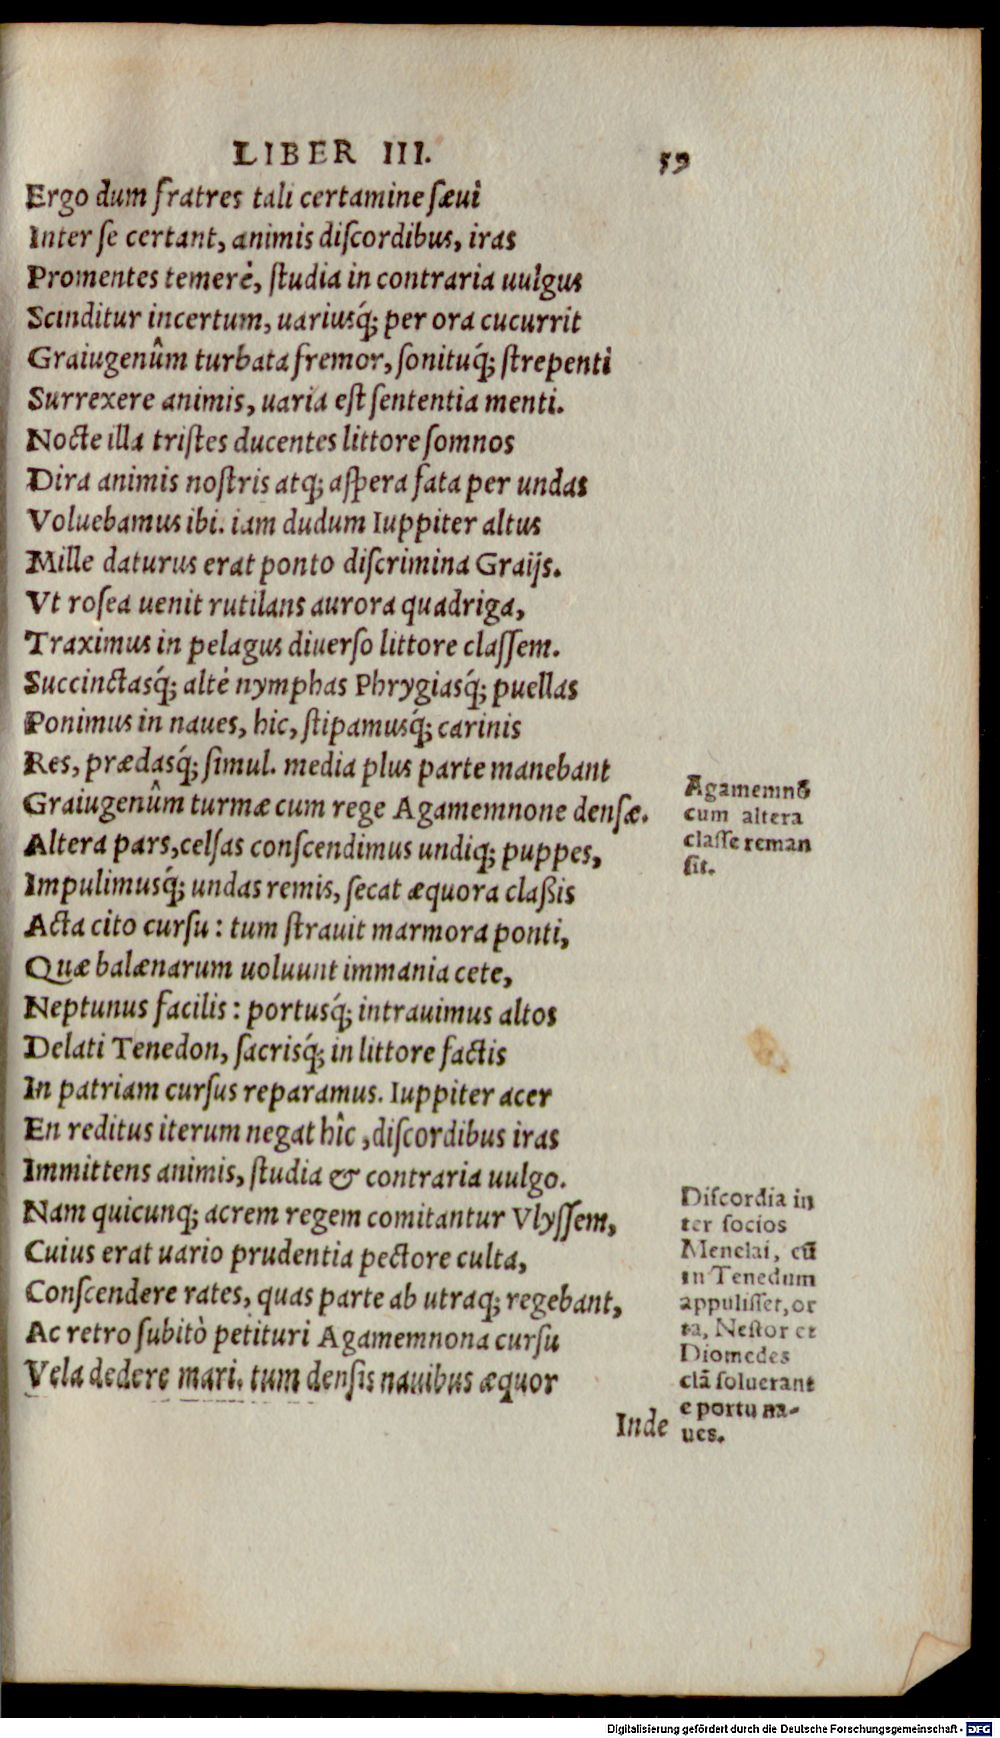 LIBER III. 59
Ergo dum fratres tali certamine sæui
Inter se certant, animis discordibus, iras
Promentes temerè, studia in contraria uulgus
Scinditur incertum, uariusq́; per ora cucurrit
Graiugenûm turbata fremor, sonituq́; strepenti
Surrexere animis, uaria est sententia menti.
Nocte illa tristes ducentes littore somnos
Dira animis nostris atq; aspera fata per undas
Voluebamus ibi. iam dudum Iuppiter altus
Mille daturus erat ponto discrimina Graijs.
Vt rosea uenit rutilans aurora quadriga,
Traximus in pelagus diuerso littore classem.
Succinctasq́; altè nymphas Phrygiasq́; puellas
Ponimus in naues, hic, stipamusq́; carinis
Res, prædasq́; simul. media plus parte manebant
Graiugenûm turmæ cum rege Agamemnone densæ.
Altera pars, celsas conscendimus undiq; puppes,
Impulimusq́; undas remis, secat æquora claßis
Acta cito cursu: tum strauit marmora ponti,
Quæ balænarum uoluunt immania cete,
Neptunus facilis: portusq́; intrauimus altos
Delati Tenedon, sacrisq́; in littore factis
In patriam cursus reparamus. Iuppiter acer
En reditus iterum negat hîc, discordibus iras
Immittens animis, studia & contraria uulgo.
Nam quicunq; acrem regem comitantur Vlyssem,
Cuius erat uario prudentia pectore culta,
Conscendere rates, quas parte ab utraq; regebant,
Ac retro subitò petituri Agamemnona cursu
Vela dedere mari. tum densis nauibus æquor
Inde
Agamemnō
cum altera
classe reman
sit.
Discordia in
ter socios
Menelai, cū
in Tenedum
appulisset, or
ta, Nestor et
Diomedes
clā soluerant
e portu na-
ues.
Digitalisierung gefördert durch die Deutsche Forschungsgemeinschaft - DFG